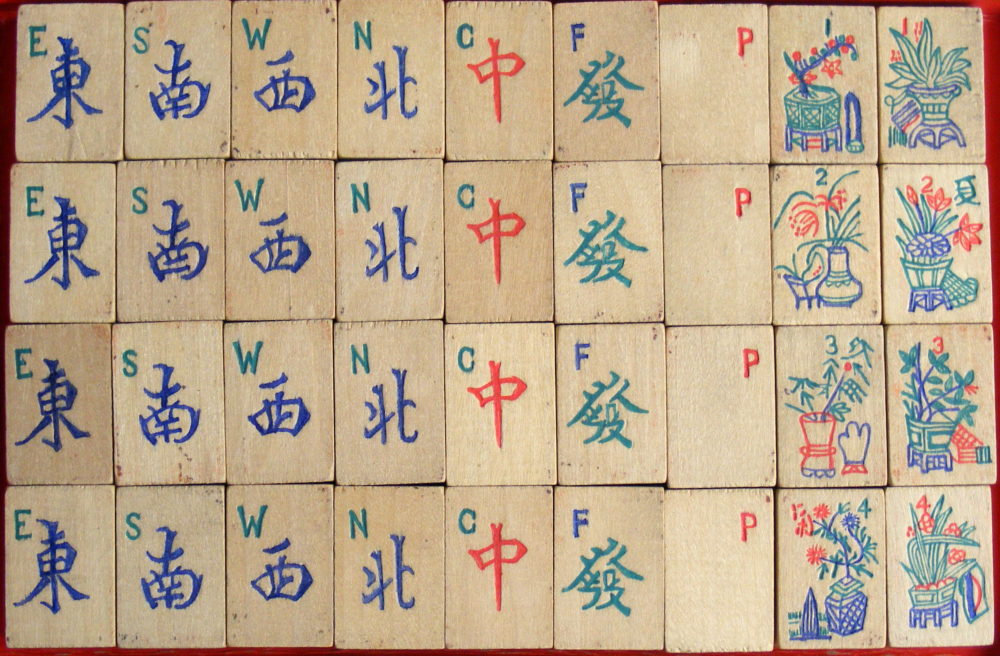 E 東 S 南 W 西 N 北 C 中 F 發 P 1 1
E 東 S 南 W 西 N 北 C 中 F 發 P 2 2 夏
E 東 S 南 W 西 N 北 C 中 F 發 P 3 3
E 東 S 南 W 西 N 北 C 中 F 發 P 4 4